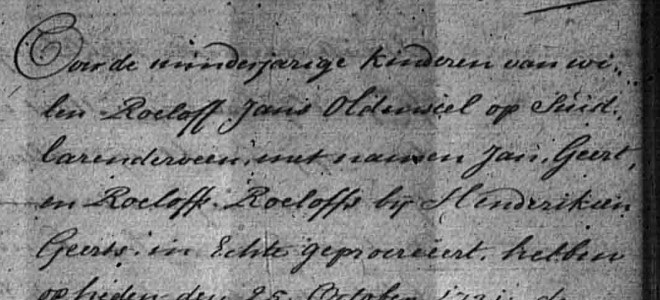 Over de minderjarige kinderen van wi-
len Roeloff Jans Oldenziel op Suid-
larenderveen, met namen Jan, Geert,
en Roeloff Roeloffs bij Hendrikien
Geerts in Echte geprocreëert, hebben
op heden den 25 October